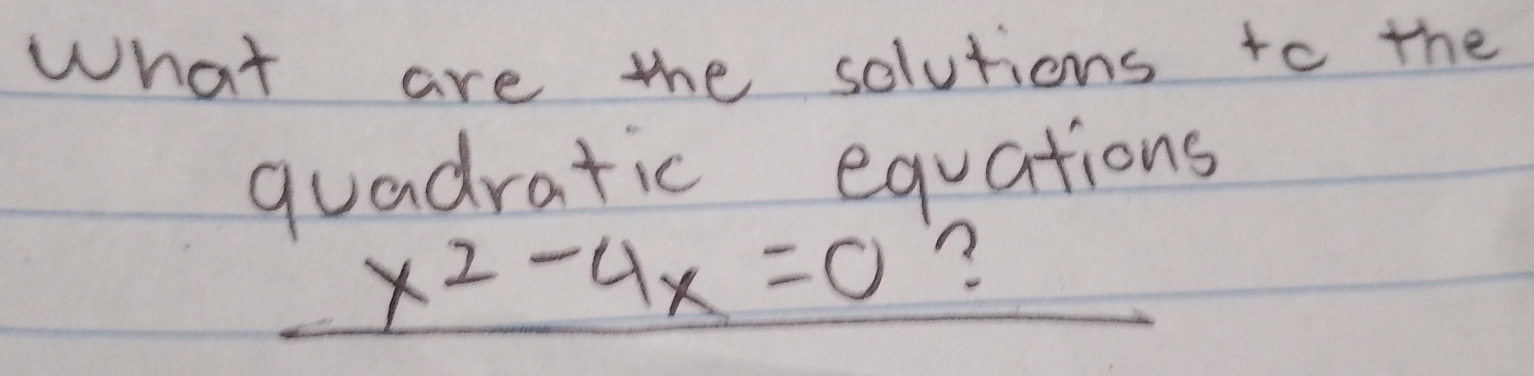 What are the solutions to the
quadratic equations
x² - 4x = 0?